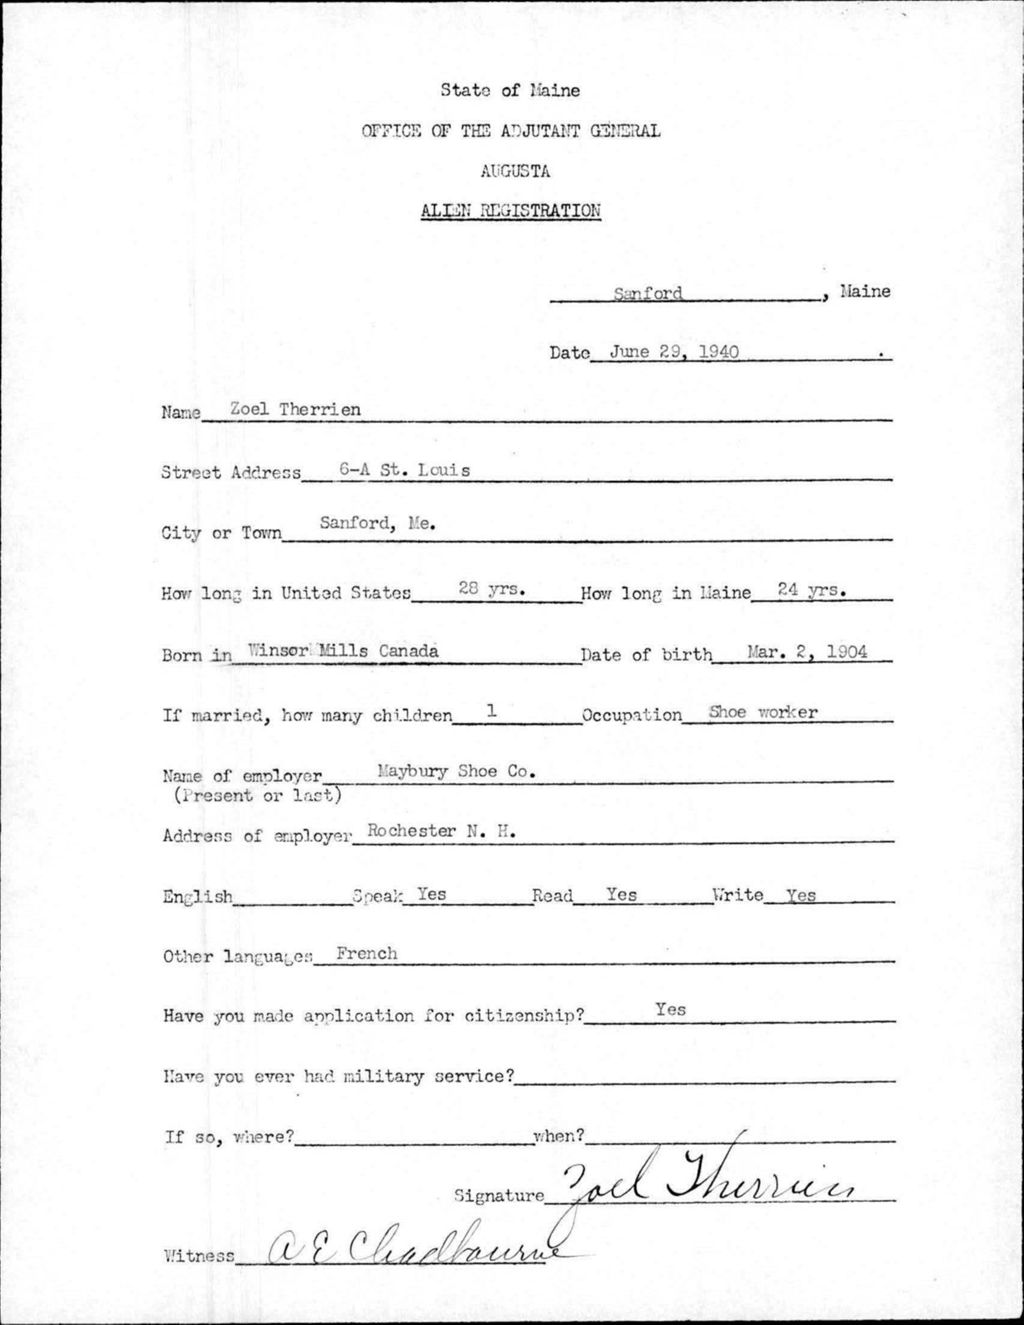 State of Maine
OFFICE OF THE ADJUTANT GENERAL
AUGUSTA
ALIEN REGISTRATION
Sanford, Maine
Date June 29, 1940.
Name Zoel Therrien
Street Address 6-A St. Louis
City or Town Sanford, Me.
How long in United States 28 yrs. How long in Maine 24 yrs.
Born in Winsor Mills Canada Date of birth Mar. 2, 1904
If married, how many children 1 Occupation Shoe worker
Name of employer Maybury Shoe Co.
(Present or last)
Address of employer Rochester N. H.
English Speak Yes Read Yes Write Yes
Other languages French
Have you made application for citizenship? Yes
Have you ever had military service?
If so, where? when?
Signature Zoel Therrien
Witness A E Chadbourne